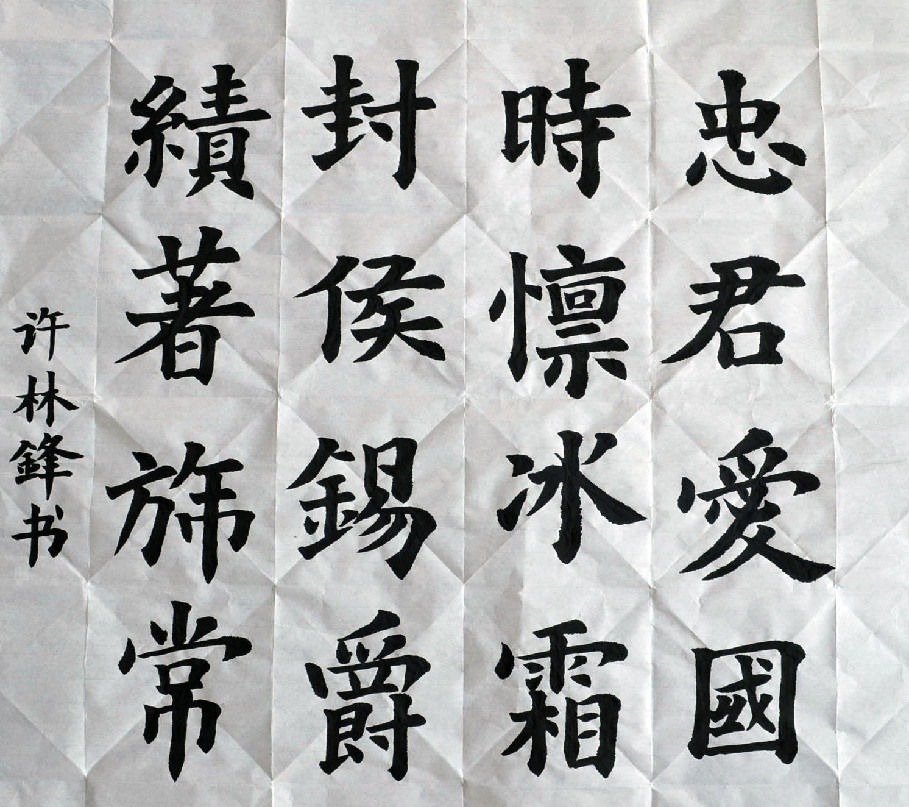 忠君愛國
時懍冰霜
封侯錫爵
績著旂常
许林鋒书